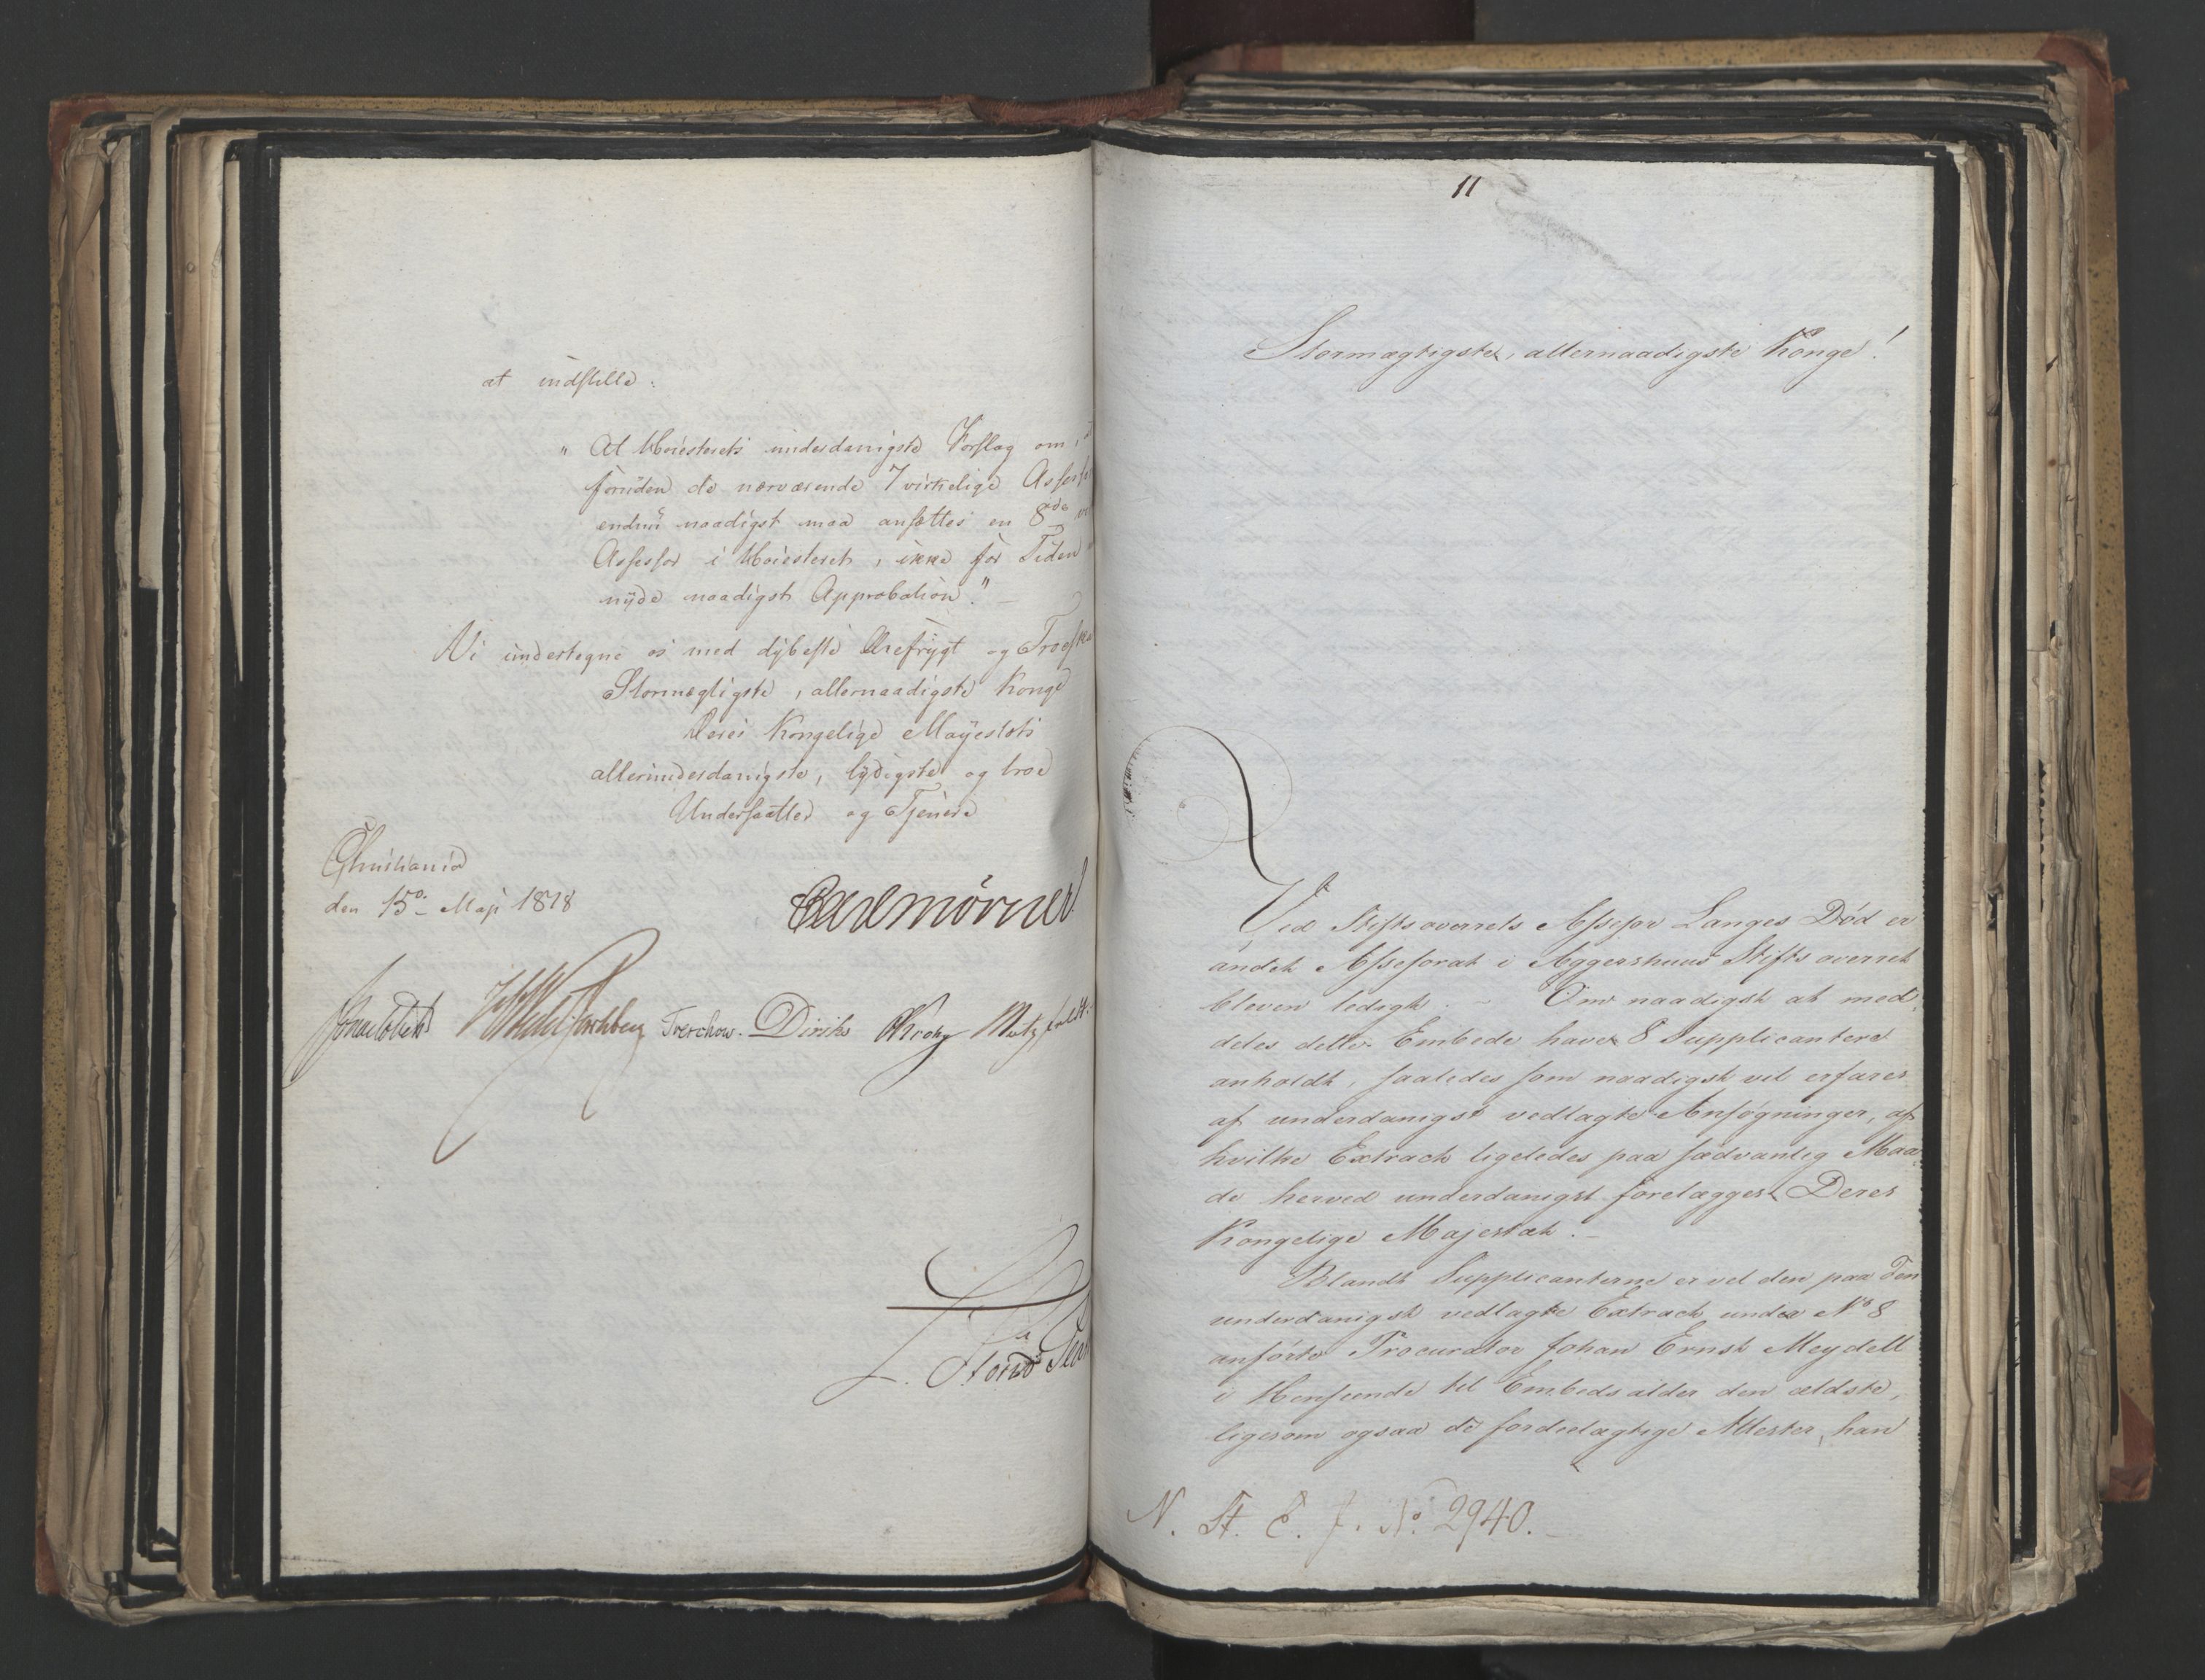 at indstille:
„ At Høiesterets underdanigste Forslag om,
foruden de nærværende 7 virkelige Assess
endnu naadigst maa ansættes en 8de
Assessor i Høiesteret, ikke for Tiden
nyde naadigst Approbation." —
Vi undertegne os med dybeste Ærefrygt og Troesk
Stormægtigste, allernaadigste Konge
Deres Kongelige Mayestets
allerunderdanigste, lydigste og troe
Undersaatter og Tjenere
Christiania
den 15de Maji 1818
Carl Mörner
Sommerhielm Wedel Jarlsberg Treschow. Diriks Krohg Motzfeldt.
11
Stormægtigste, allernaadigste Konge!
Ved Stiftsoverrets Assessor Langes Død er
andet Assessorat i Aggershuus Stiftsoverret
bleven ledigt. — Om naadigst at med„
deles dette Embede have 8 Supplicantere
anholdt, saaledes som naadigst vil erfares
af underdanigst vedlagte Ansøgninger, af
hvilke Extract ligeledes paa sædvanlig Maa„
de herved underdanigst forelægges Deres
Kongelige Majestæt. —
Blandt Supplicanterne er vel den paa den
underdanigst vedlagte Extract under No 8
anførte Procurator Johan Ernst Meydell
i Henseende til Embedsalder den ældste,
ligesom ogsaa de fordeelagtige Attester, han
N. St. E. J. No. 2940.